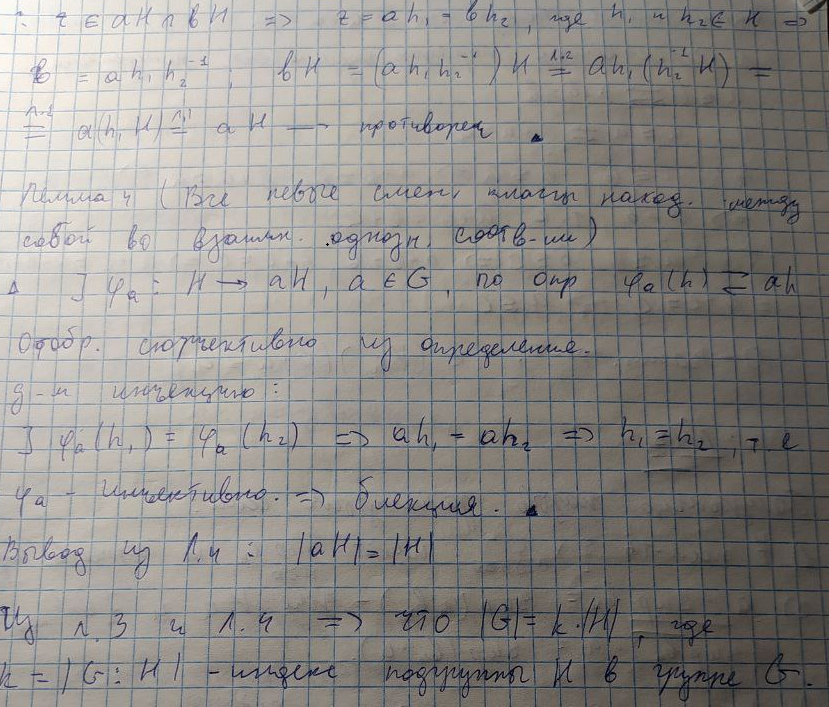 z ∈ aH ∩ bH => z = ah₁ = bh₂, где h₁ и h₂ ∈ H =>
b = ah₁h₂⁻¹, bH = (ah₁h₂⁻¹)H =(л.2) ah₁(h₂⁻¹H) =
=(л.2) a(h₁H) =(л.1) aH — противореч
Лемма 4 (Все левые смеж. классы наход. между
собой во взаимн. однозн. соотв-ии)
] φₐ: H → aH, a ∈ G, по опр φₐ(h) ⇌ ah
Отобр. сюръективно из определения.
д-м инъекцию:
] φₐ(h₁) = φₐ(h₂) => ah₁ = ah₂ => h₁ = h₂, т.е
φₐ - инъективно. => биекция.
Вывод из Л.4: |aH| = |H|
Из л.3 и Л.4 => что |G| = k·|H|, где
k = |G:H| - индекс подгруппы H в группе G.